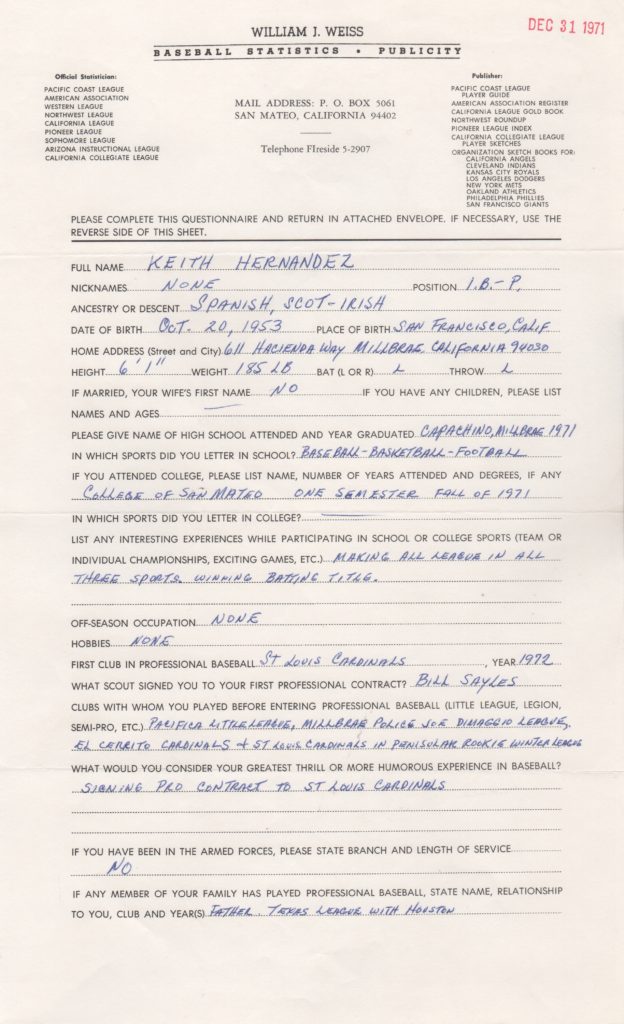 WILLIAM J. WEISS
DEC 31 1971
BASEBALL STATISTICS • PUBLICITY
Official Statistician:
PACIFIC COAST LEAGUE
AMERICAN ASSOCIATION
WESTERN LEAGUE
NORTHWEST LEAGUE
CALIFORNIA LEAGUE
PIONEER LEAGUE
SOPHOMORE LEAGUE
ARIZONA INSTRUCTIONAL LEAGUE
CALIFORNIA COLLEGIATE LEAGUE
MAIL ADDRESS: P. O. BOX 5061
SAN MATEO, CALIFORNIA 94402
Telephone FIreside 5-2907
Publisher:
PACIFIC COAST LEAGUE
PLAYER GUIDE
AMERICAN ASSOCIATION REGISTER
CALIFORNIA LEAGUE GOLD BOOK
NORTHWEST ROUNDUP
PIONEER LEAGUE INDEX
CALIFORNIA COLLEGIATE LEAGUE
PLAYER SKETCHES
ORGANIZATION SKETCH BOOKS FOR:
CALIFORNIA ANGELS
CLEVELAND INDIANS
KANSAS CITY ROYALS
LOS ANGELES DODGERS
NEW YORK METS
OAKLAND ATHLETICS
PHILADELPHIA PHILLIES
SAN FRANCISCO GIANTS
PLEASE COMPLETE THIS QUESTIONNAIRE AND RETURN IN ATTACHED ENVELOPE. IF NECESSARY, USE THE
REVERSE SIDE OF THIS SHEET.
FULL NAME KEITH HERNANDEZ
NICKNAMES NONE POSITION 1.B.-P.
ANCESTRY OR DESCENT SPANISH, SCOT-IRISH
DATE OF BIRTH OCT. 20, 1953 PLACE OF BIRTH SAN FRANCISCO, CALIF
HOME ADDRESS (Street and City) 611 HACIENDA WAY MILLBRAE CALIFORNIA 94030
HEIGHT 6'1" WEIGHT 185 LB BAT (L OR R) L THROW L
IF MARRIED, YOUR WIFE'S FIRST NAME NO IF YOU HAVE ANY CHILDREN, PLEASE LIST
NAMES AND AGES —
PLEASE GIVE NAME OF HIGH SCHOOL ATTENDED AND YEAR GRADUATED CAPACHINO, MILLBRAE 1971
IN WHICH SPORTS DID YOU LETTER IN SCHOOL? BASEBALL-BASKETBALL-FOOTBALL
IF YOU ATTENDED COLLEGE, PLEASE LIST NAME, NUMBER OF YEARS ATTENDED AND DEGREES, IF ANY
COLLEGE OF SAN MATEO ONE SEMESTER FALL OF 1971
IN WHICH SPORTS DID YOU LETTER IN COLLEGE? —
LIST ANY INTERESTING EXPERIENCES WHILE PARTICIPATING IN SCHOOL OR COLLEGE SPORTS (TEAM OR
INDIVIDUAL CHAMPIONSHIPS, EXCITING GAMES, ETC.) MAKING ALL LEAGUE IN ALL
THREE SPORTS. WINNING BATTING TITLE.
OFF-SEASON OCCUPATION NONE
HOBBIES NONE
FIRST CLUB IN PROFESSIONAL BASEBALL ST LOUIS CARDINALS, YEAR 1972
WHAT SCOUT SIGNED YOU TO YOUR FIRST PROFESSIONAL CONTRACT? BILL SAYLES
CLUBS WITH WHOM YOU PLAYED BEFORE ENTERING PROFESSIONAL BASEBALL (LITTLE LEAGUE, LEGION,
SEMI-PRO, ETC.) PACIFICA LITTLE LEAGUE, MILLBRAE POLICE JOE DIMAGGIO LEAGUE,
EL CERRITO CARDINALS + ST LOUIS CARDINALS IN PENISULAR ROOKIE WINTER LEAGUE
WHAT WOULD YOU CONSIDER YOUR GREATEST THRILL OR MORE HUMOROUS EXPERIENCE IN BASEBALL?
SIGNING PRO CONTRACT TO ST LOUIS CARDINALS
IF YOU HAVE BEEN IN THE ARMED FORCES, PLEASE STATE BRANCH AND LENGTH OF SERVICE
NO
IF ANY MEMBER OF YOUR FAMILY HAS PLAYED PROFESSIONAL BASEBALL, STATE NAME, RELATIONSHIP
TO YOU, CLUB AND YEAR(S) FATHER. TEXAS LEAGUE WITH HOUSTON